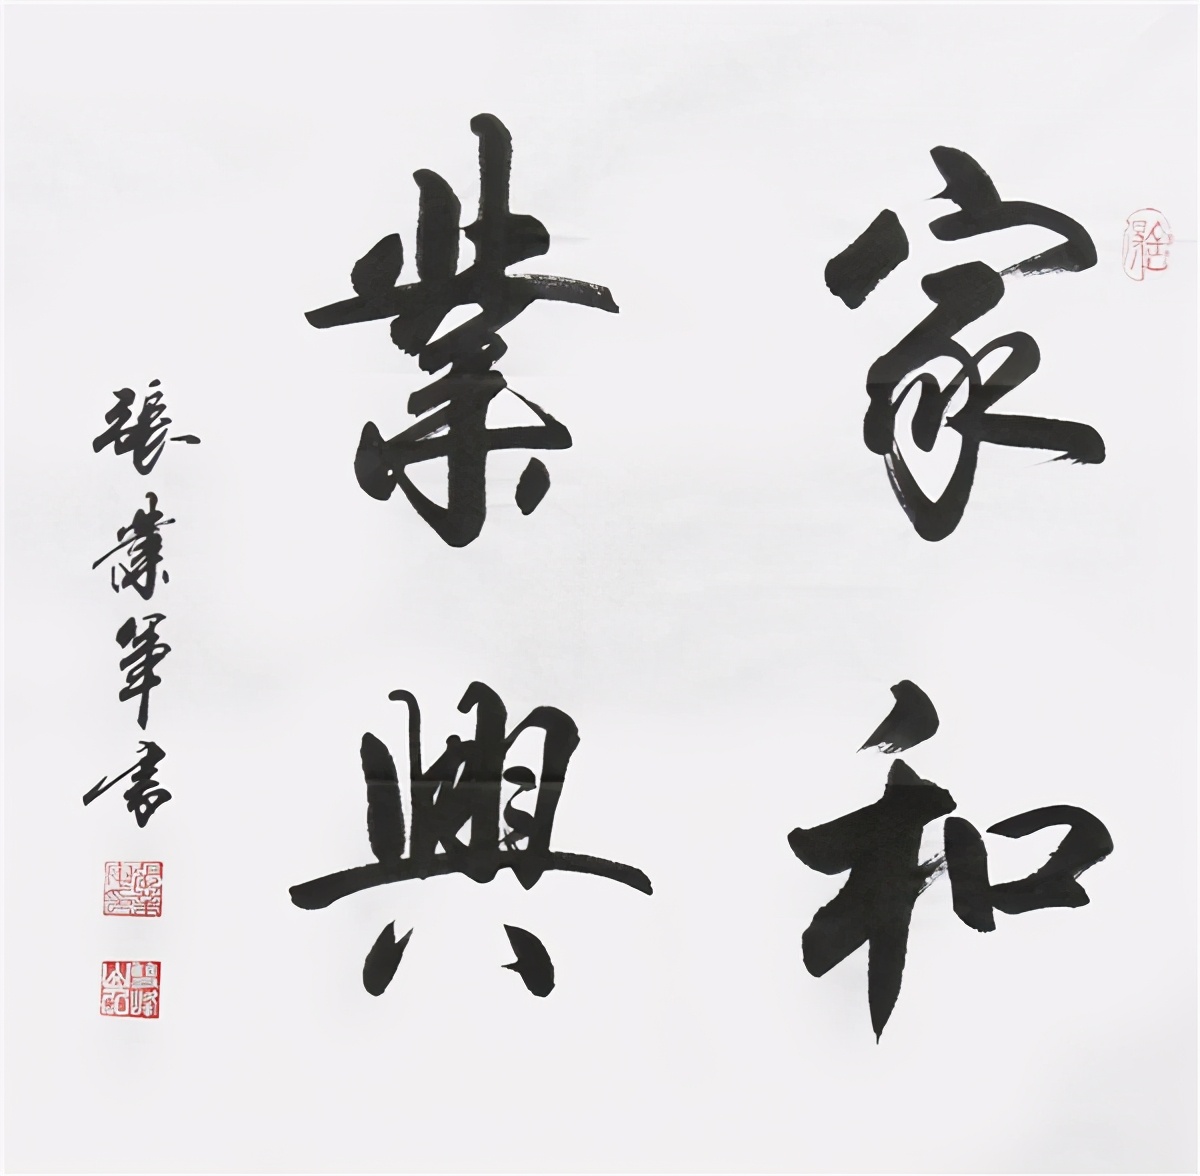 家和
業興
張業軍书